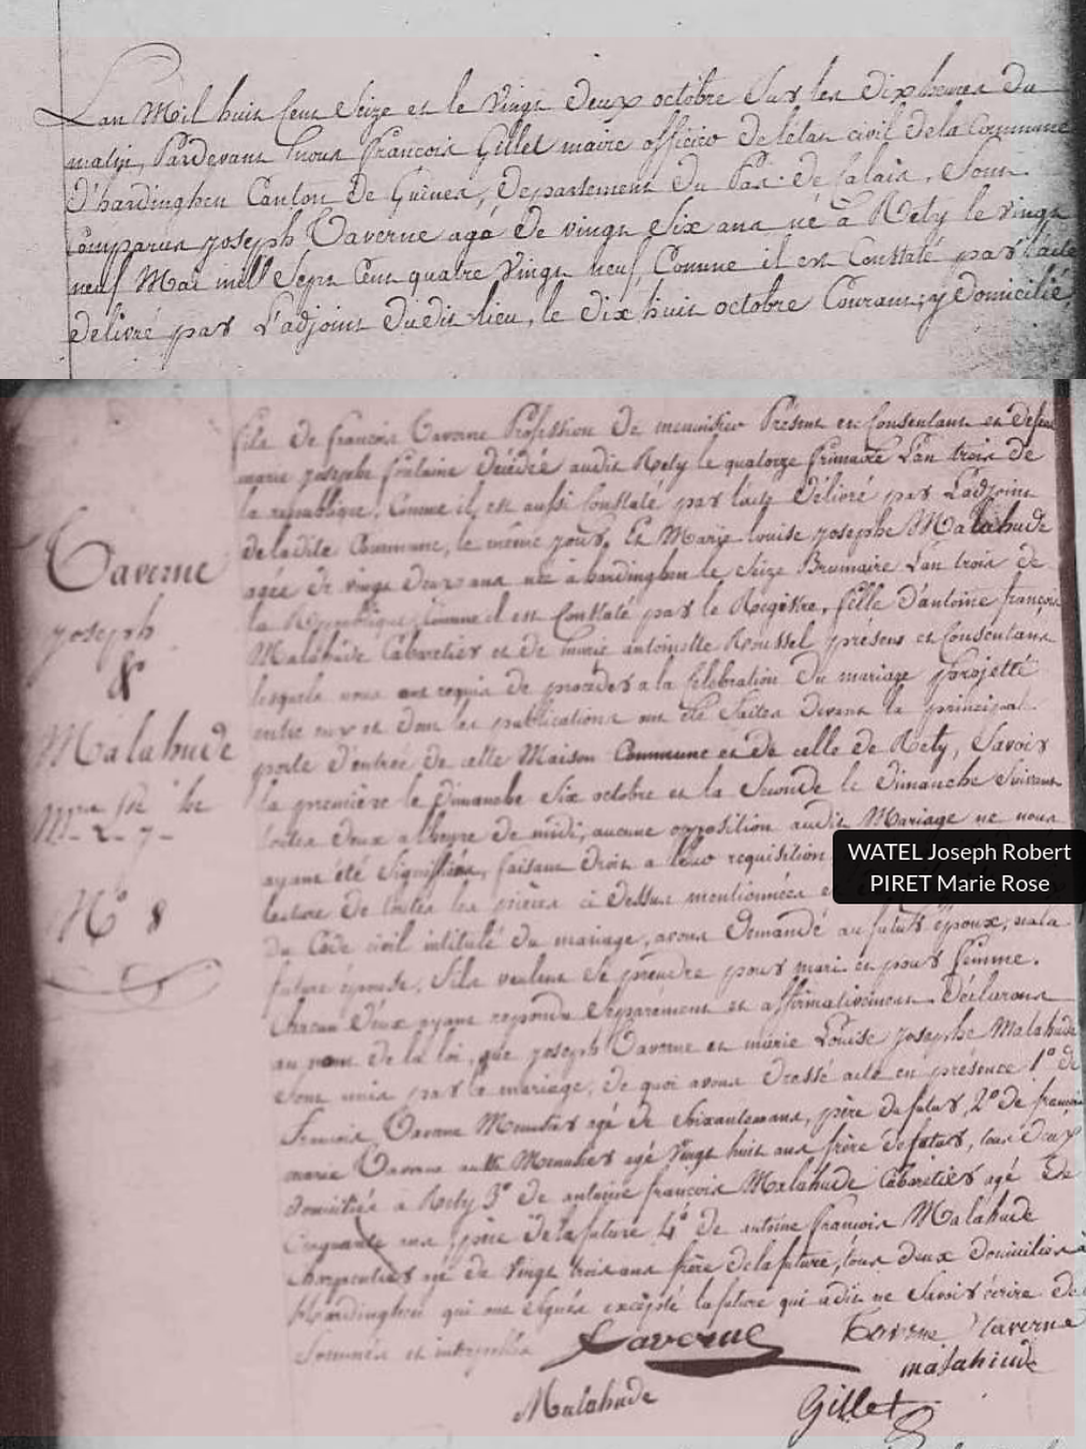 L'an Mil huit Cent Seize et le Vingt Deux octobre Sur les Dix heures Du
matin, Pardevant nous François Gillet maire officier De l'état civil De la Commune
D'hardinghen Canton De Guînes, Departement Du Pas-De-Calais, Sont
Comparus joseph Taverne agé De vingt Six ans né à Rety le vingt
neuf Mai mill Sept Cent quatre Vingt neuf Comme il est Constaté par l'acte
Délivré par L'adjoint Dudit lieu, le Dix huit octobre Courant, y Domicilié,
fils De françois Taverne Profession De menuisier Présent et Consentant et De feue
marie josephe fontaine Décédée audit Rety le quatorze frimaire L'an trois De
la republique, Comme il est aussi Constaté par l'acte Délivré par L'adjoint
De ladite Commune, le même jour, Et Marie Louise josephe Malahude
agée De vingt Deux ans née à hardinghen le Seize Brumaire L'an trois De
la République Comme il est Constaté par le Registre, fille D'antoine françois
Malahude Cabaretier et De marie antoinette Roussel présens et Consentans
lesquels nous ont requis De procéder a la Célébration Du mariage projetté
entre eux et Dont les publications ont été faites Devant la principal
porte D'entrée De cette Maison Commune et De celle De Rety, Savoir
la première le Dimanche Six octobre et la Seconde le Dimanche Suivant
toutes Deux a l'heure De midi, aucune opposition audit Mariage ne nous
ayant été Signifiée, faisant Droit a leur requisition
lecture De toutes les pièces ci Dessus mentionnées et
Du Code civil intitulé Du mariage, avons Demandé au futur époux, et a la
future épouse, S'ils veulent Se prendre pour mari et pour femme.
Chacun D'eux ayant repondu Séparément et affirmativement. Déclarons
au nom De la loi, que joseph Taverne et marie Louise josephe Malahude
Sont unis par le mariage, De quoi avons Dressé acte en présence 1° De
François Taverne Menuisier agé De Soixante ans, père Du futur, 2° De françois
marie Taverne Menuisier agé Vingt huit ans frère Du futur, tous Deux
Domiciliés a Rety 3° De antoine françois Malahude Cabaretier agé De
Cinquante ans père De la future 4° De antoine François Malahude
Charpentier agé De Vingt trois ans frère De la future, tous Deux Domiciliés à
Hardinghen qui ont Signés excepté la future qui a Dit ne Savoir écrire De
Sommée et interpellée
Taverne
Taverne
Taverne
malahude
Malahude
Gillet
Taverne
joseph
&
Malahude
N° 8
WATEL Joseph Robert
PIRET Marie Rose